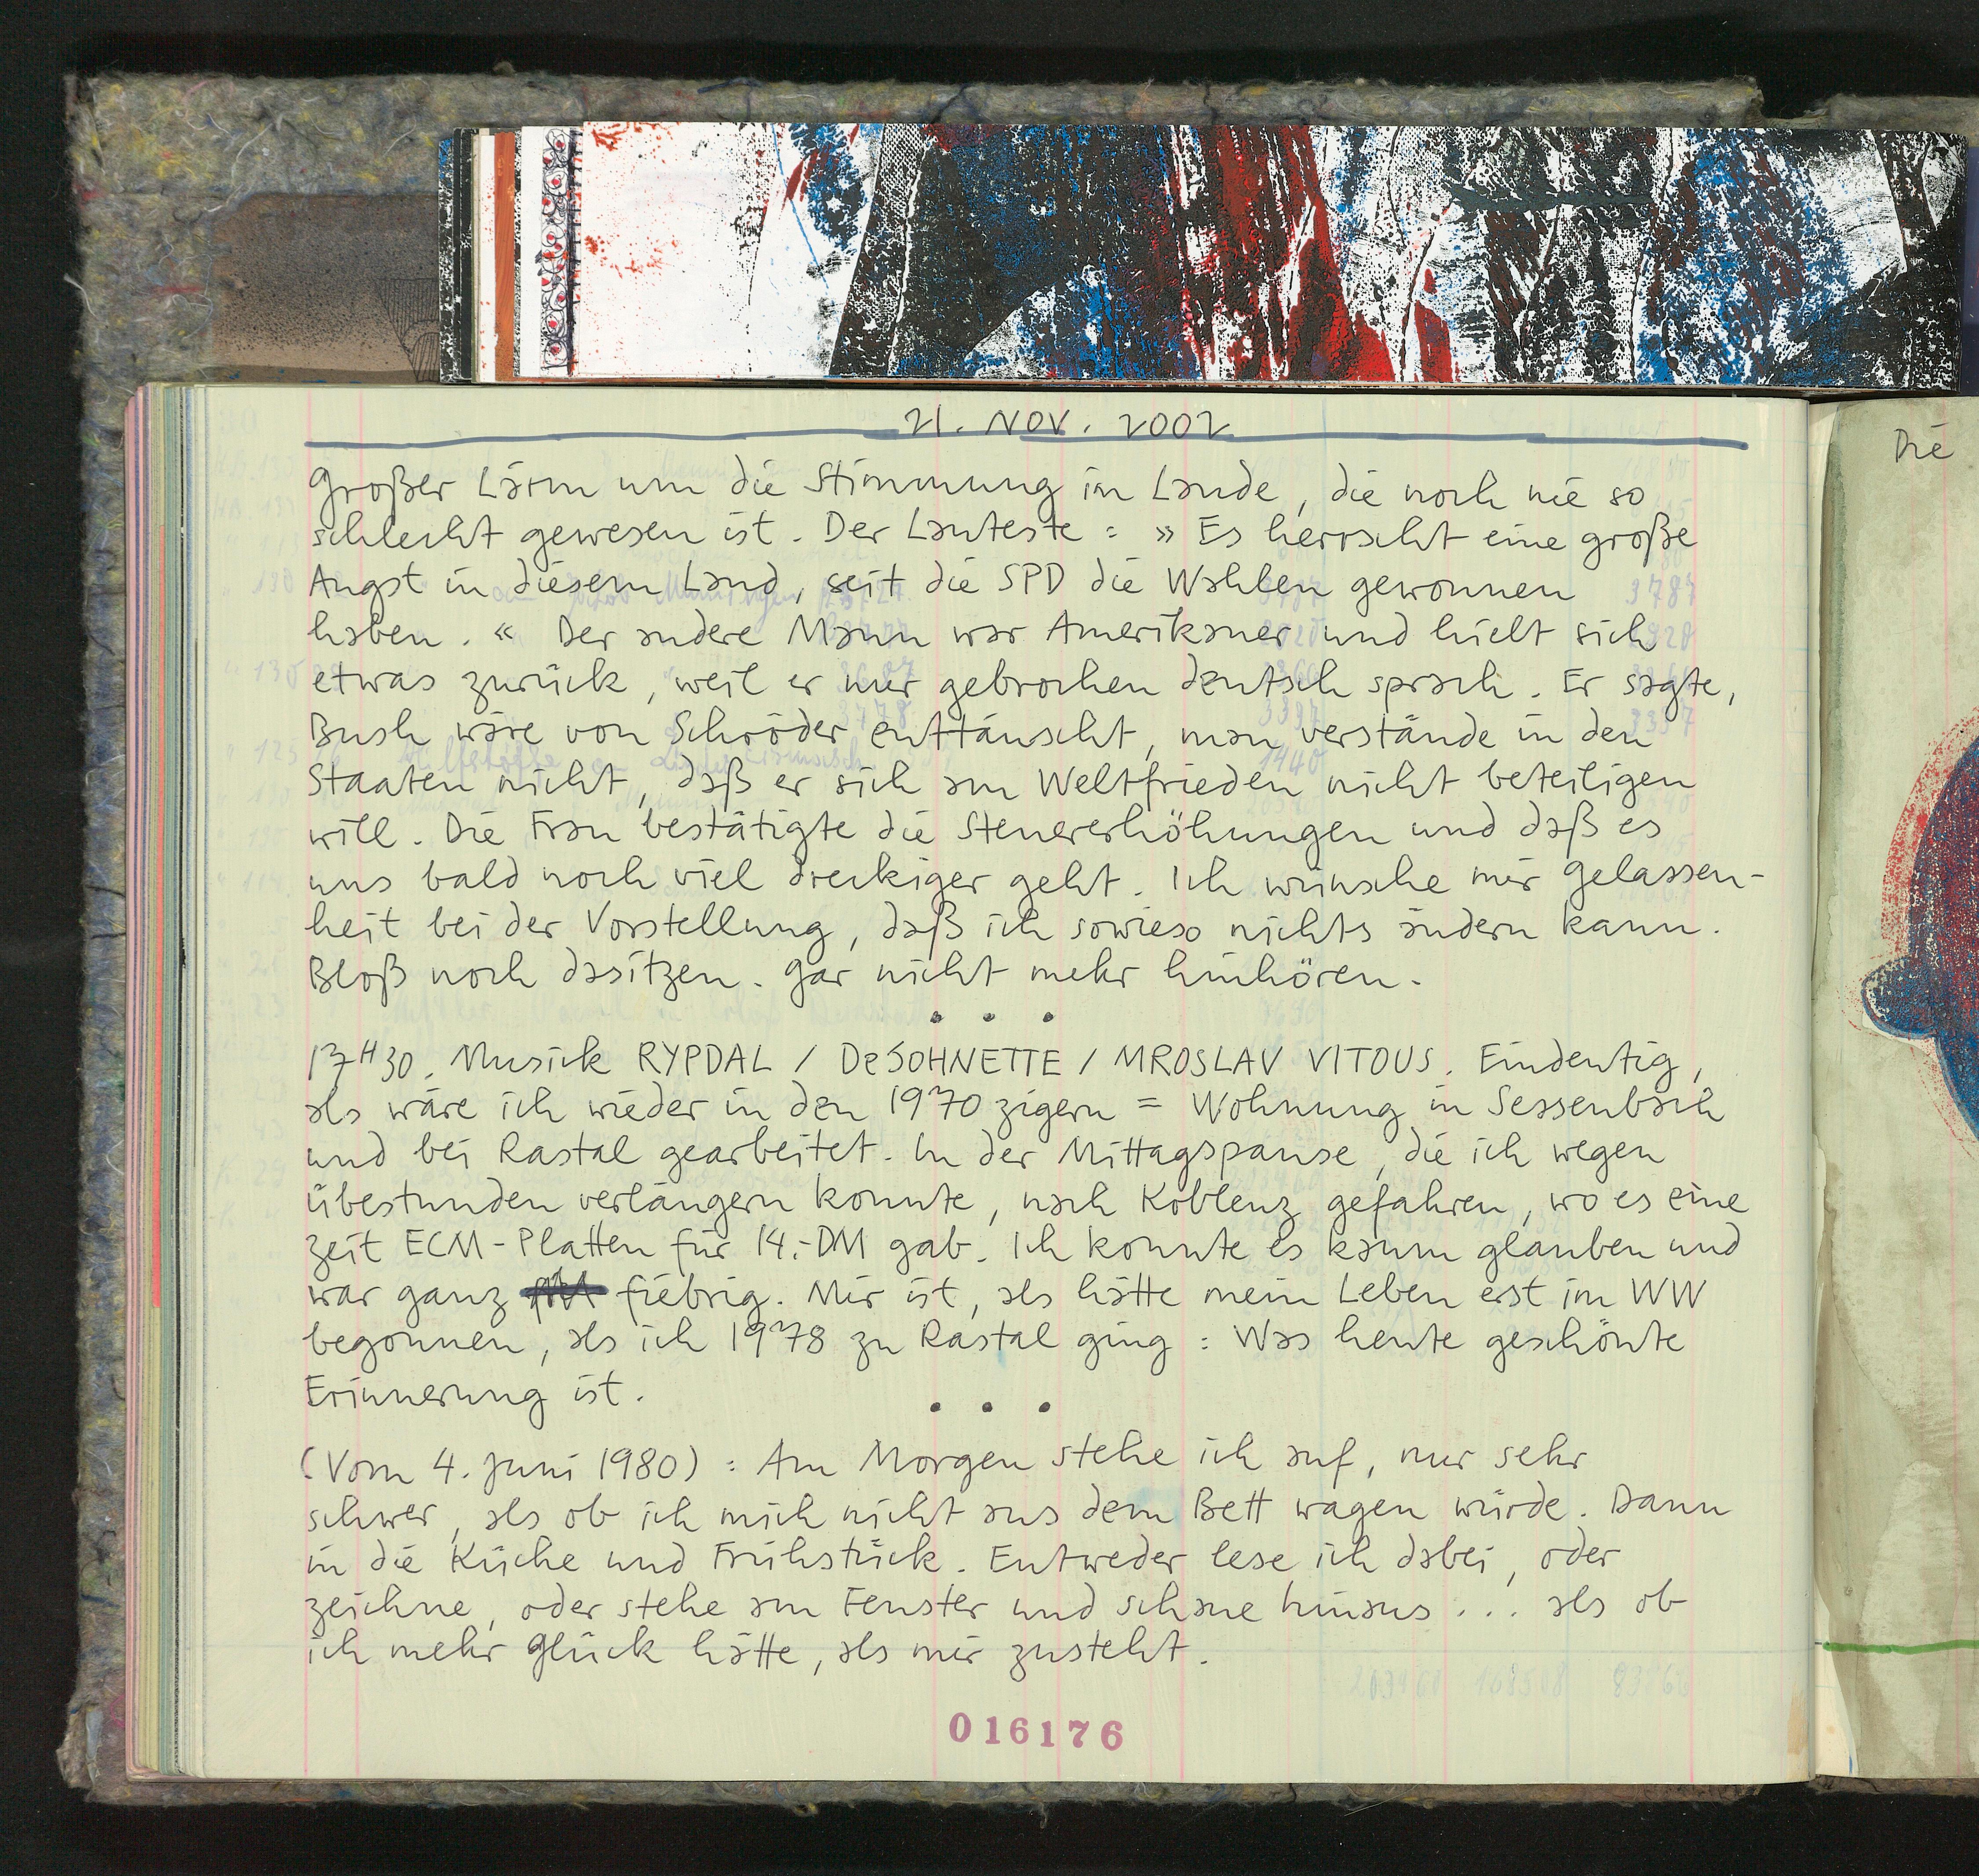 21. NOV. 2002
Großer Lärm um die Stimmung im Lande, die noch nie so
schlecht gewesen ist. Der Lauteste: »Es herrscht eine große
Angst in diesem Land, seit die SPD die Wahlen gewonnen
haben.« Der andere Mann war Amerikaner und hielt sich
etwas zurück, weil er nur gebrochen deutsch sprach. Er sagte,
Bush wäre von Schröder enttäuscht, man verstände in den
Staaten nicht, daß er sich am Weltfrieden nicht beteiligen
will. Die Frau bestätigte die Steuererhöhungen und daß es
uns bald noch viel dreckiger geht. Ich wünsche mir Gelassen-
heit bei der Vorstellung, daß ich sowieso nichts ändern kann.
Bloß noch dasitzen. Gar nicht mehr hinhören.
• • •
17H30. Musick RYPDAL / DeJOHNETTE / MROSLAV VITOUS. Eindeutig,
als wäre ich wieder in den 1970zigern = Wohnung in Sessenbach
und bei Rastal gearbeitet. In der Mittagspause, die ich wegen
übestunden verlängern konnte, nach Koblenz gefahren, wo es eine
zeit ECM-Platten für 14.-DM gab. Ich konnte es kaum glauben und
war ganz fiebrig. Mir ist, als hätte mein Leben erst im WW
begonnen, als ich 1978 zu Rastal ging: Was heute geschönte
Erinnerung ist.
• • •
(Vom 4. Juni 1980): Am Morgen stehe ich auf, nur sehr
schwer, als ob ich mich nicht aus dem Bett wagen würde. Dann
in die Küche und Frühstück. Entweder lese ich dabei, oder
zeichne, oder stehe am Fenster und schaue hinaus... als ob
ich mehr Glück hätte, als mir zusteht.
016176
Die